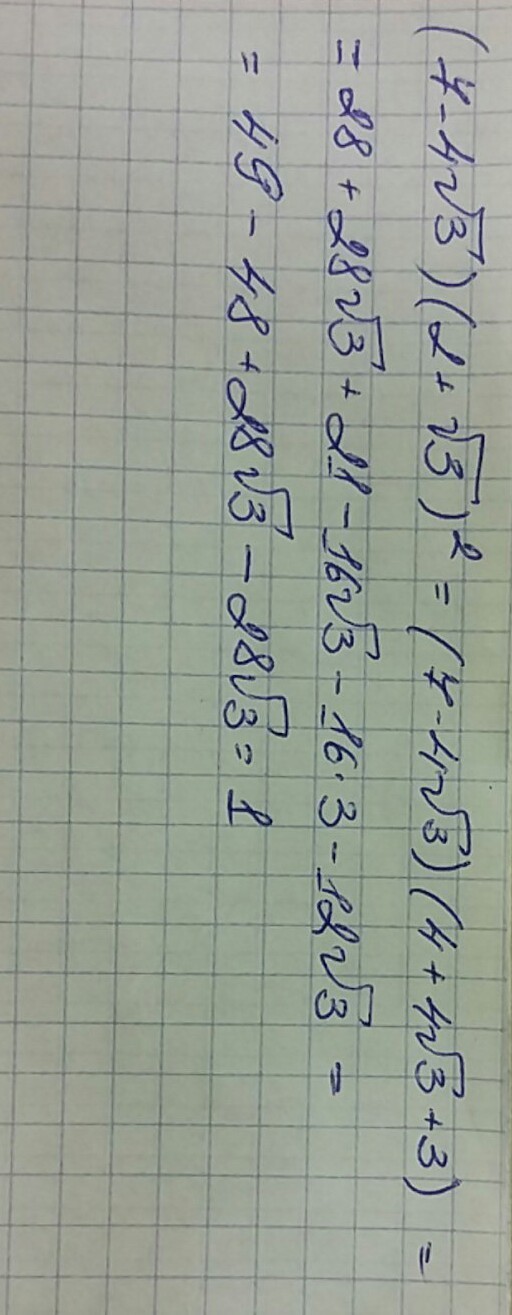 (7-4√3)(2+√3)² = (7-4√3)(4+4√3+3) =
= 28 + 28√3 + 21 - 16√3 - 16·3 - 12√3 =
= 49 - 48 + 28√3 - 28√3 = 1